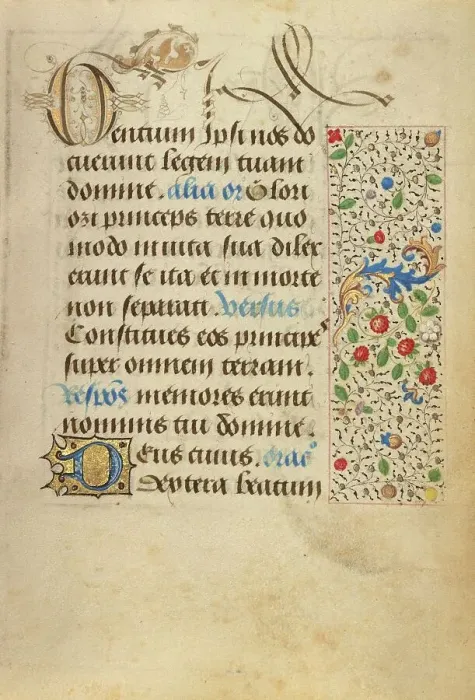 Gentium Ipsi nos do
cuerunt legem tuam
domine. alia or Glori
osi princeps terre quo
modo in uita sua dilex
erunt se ita et in morte
non separati Versus
Constitues eos principeˢ
super omnem terram.
Respoˢ memores erunt
nominis tui domine.
Deus cuius. oracᵒ
Dextera beatum